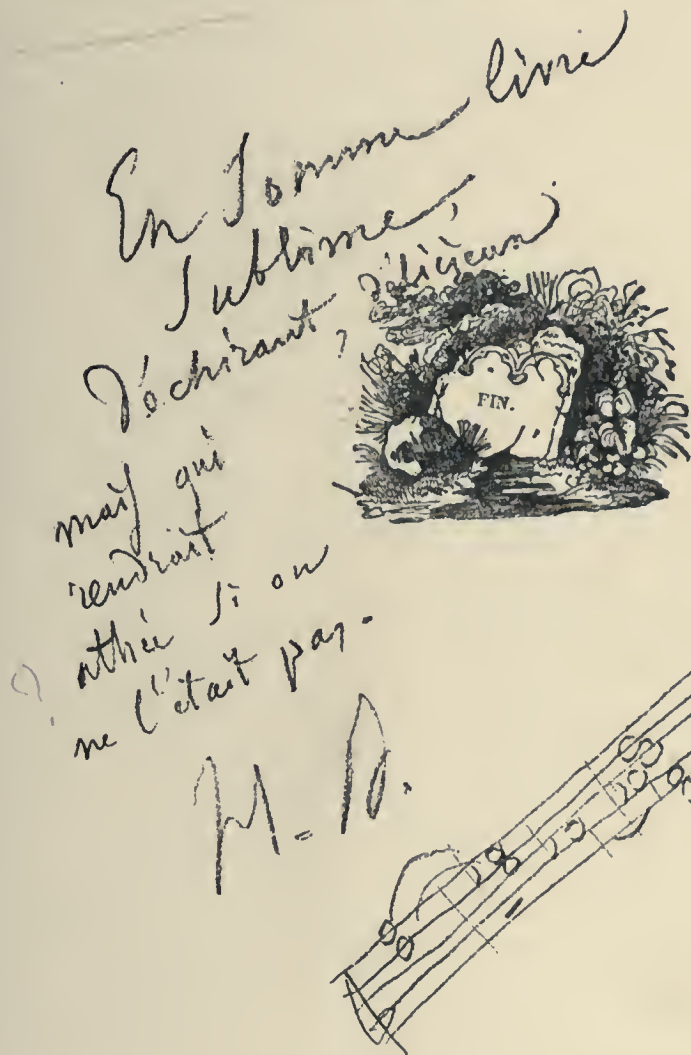 En Somme livre
Sublime,
déchirant, délicieux
mais qui
rendrait
athée si on
ne l'était pas.
H. B.
FIN.